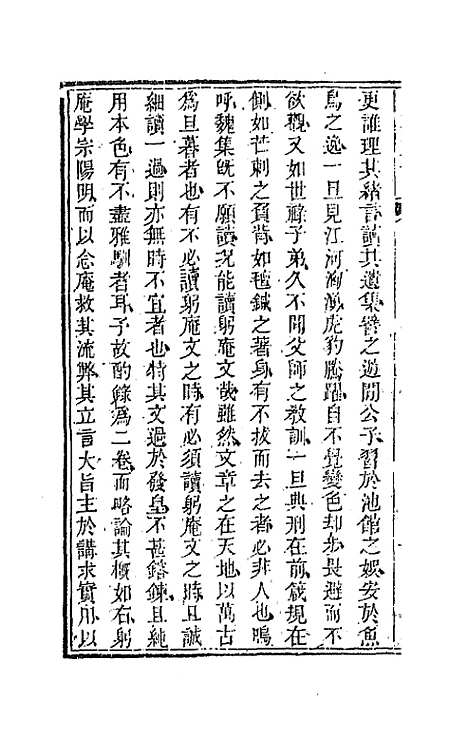 更誰理其緒言讀其遺集譬之遊閒公子習於池館之娛安於魚
鳥之逸一旦見江河洶湧虎豹騰躍自不覺變色却步畏避而不
欲觀又如世祿子弟久不聞父師之教訓一旦典刑在前箴規在
側如芒刺之負背如氊鍼之著身有不拔而去之者必非人也嗚
呼魏集旣不願讀况能讀躬庵文哉雖然文章之在天地以萬古
爲旦暮者也有不必讀躬庵文之時有必須讀躬庵文之時且誠
細讀一過則亦無時不宜者也特其文過於發皇不甚鎔鍊且純
用本色有不盡雅馴者耳予故酌錄爲二卷而略論其槪如右躬
庵學宗陽明而以念庵救其流弊其立言大旨主於講求實用以